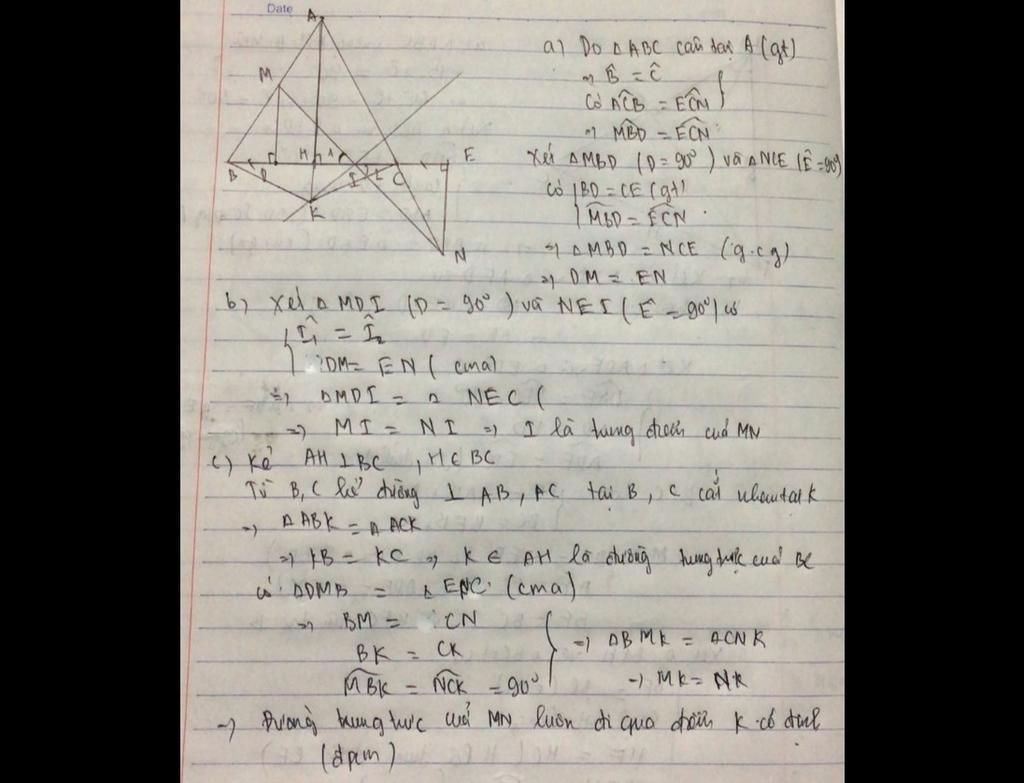 Date
A
M
B
D
H
1
I
2
C
E
K
N
a) Do △ABC cân tại A (gt)
=> B̂ = Ĉ
Có ACB̂ = ECN̂
=> MBD̂ = ECN̂
Xét △MBD (D = 90°) và △NCE (Ê = 90°)
có BD = CE (gt)
MBD̂ = ECN̂
=> △MBD = NCE (g.cg)
=> DM = EN
b, Xét △MDI (D = 90°) và NEI (Ê = 90°) có
Î₁ = Î₂
DM = EN (cma)
=> △MDI = △ NEC (
=> MI = NI => I là trung điểm của MN
c) Kẻ AH ⊥ BC, H ∈ BC
Từ B, C kẻ đường ⊥ AB, AC tại B, C cắt nhau tại K
=> △ABK = △ACK
=> KB = KC => K ∈ AH là đường trung trực của BC
có △DMB = △ENC (cma)
=> BM = CN
BK = CK
MBK̂ = NCK̂ = 90°
=> △BMK = △CNK
=> MK = NK
=> Đường trung trực của MN luôn đi qua điểm K cố định
(đpcm)